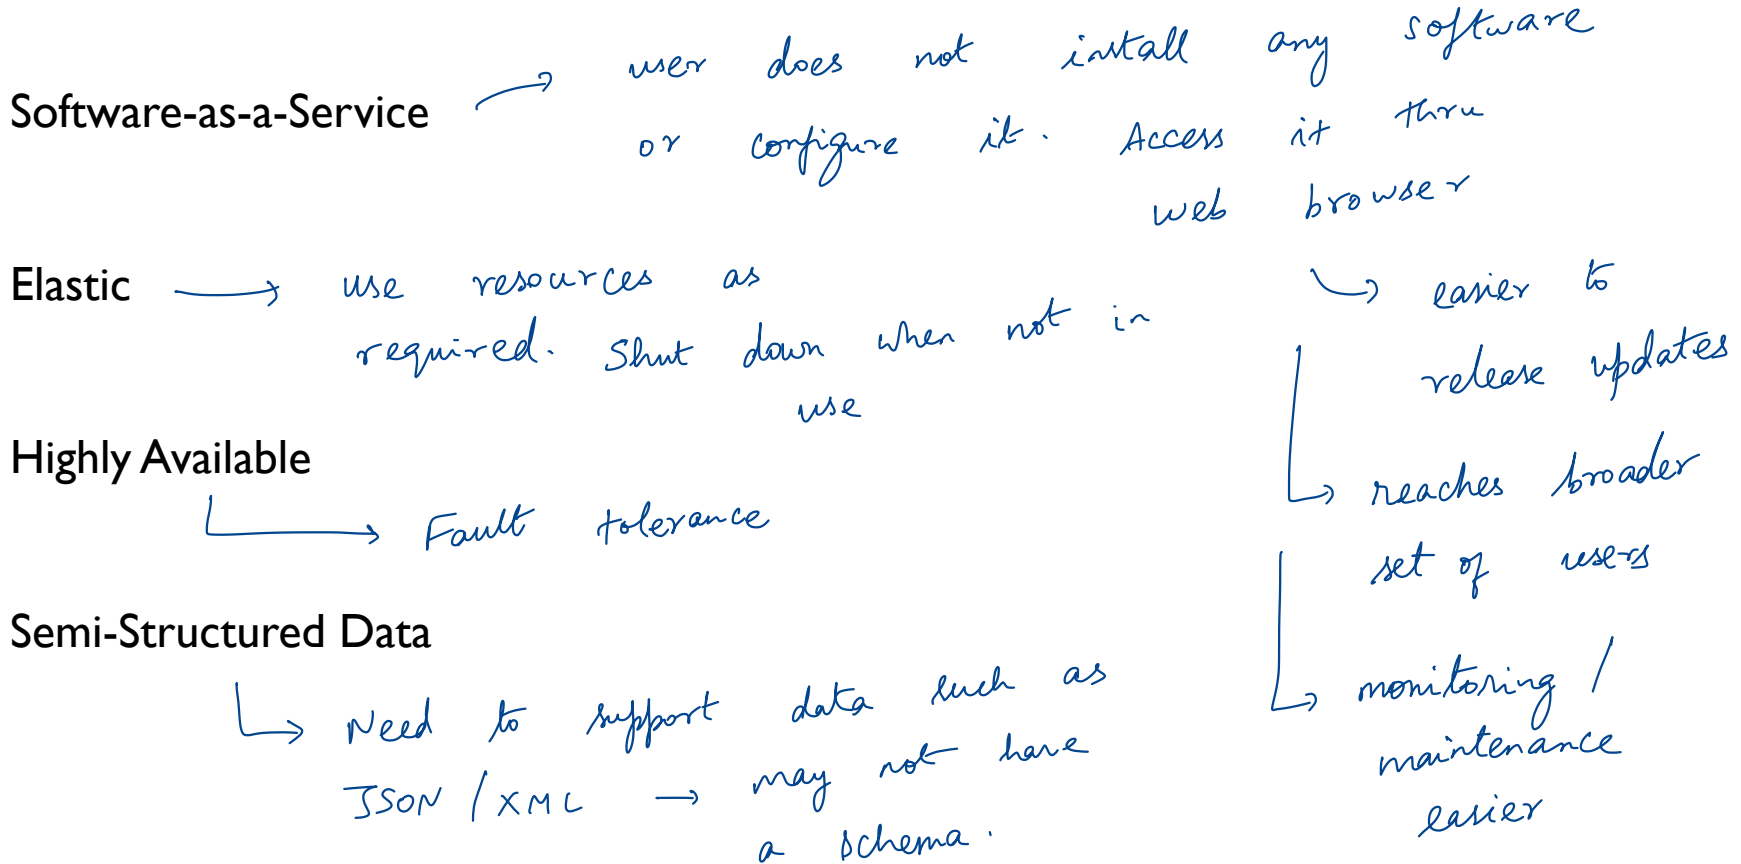 Software-as-a-Service → user does not install any software
or configure it. Access it thru
web browser
→ easier to
release updates
→ reaches broader
set of users
→ monitoring /
maintenance
easier
Elastic → use resources as
required. Shut down when not in
use
Highly Available
→ Fault tolerance
Semi-Structured Data
→ Need to support data such as
JSON / XML → may not have
a schema.